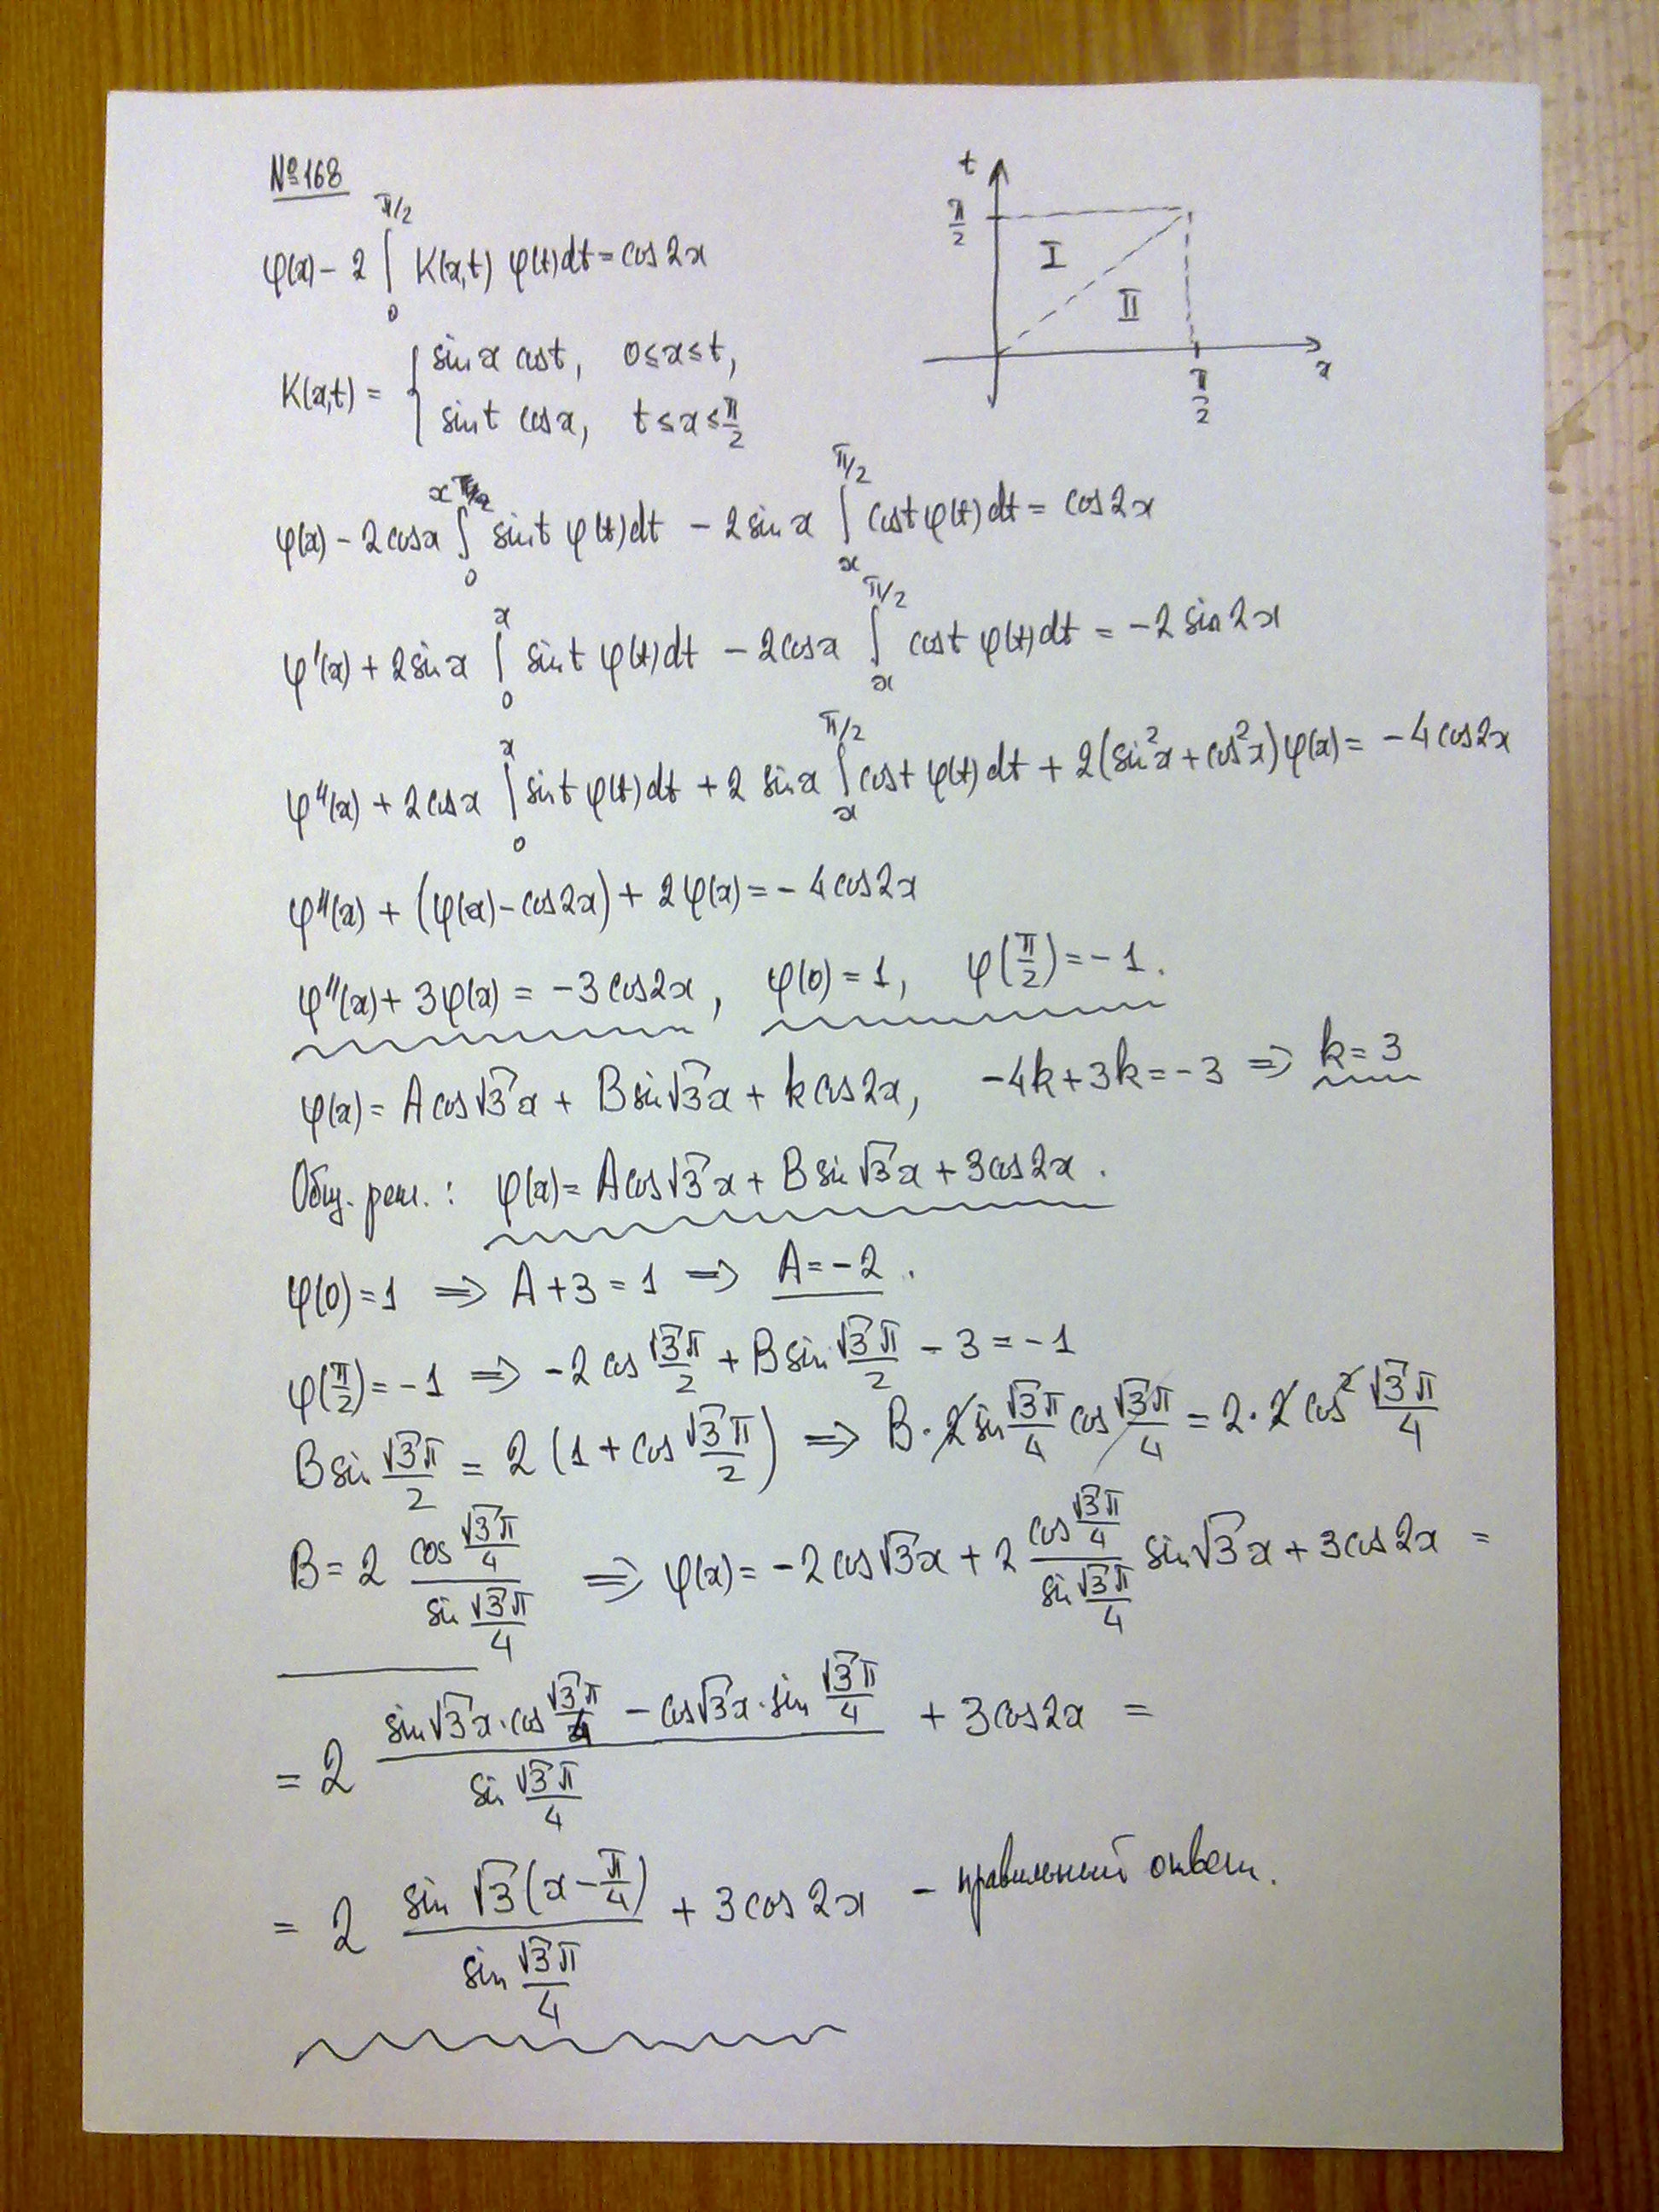 №168
φ(x) - 2 ∫₀^{π/2} K(x,t) φ(t)dt = cos2x
K(x,t) = { sinx cost, 0≤x≤t,
sint cosx, t≤x≤π/2
t
π/2
I
II
π/2
x
φ(x) - 2cosx ∫₀^x sint φ(t)dt - 2sinx ∫_x^{π/2} cost φ(t)dt = cos2x
φ'(x) + 2sinx ∫₀^x sint φ(t)dt - 2cosx ∫_x^{π/2} cost φ(t)dt = -2sin2x
φ''(x) + 2cosx ∫₀^x sint φ(t)dt + 2 sinx ∫_x^{π/2} cost φ(t)dt + 2(sin²x + cos²x)φ(x) = -4cos2x
φ''(x) + (φ(x) - cos2x) + 2φ(x) = -4cos2x
φ''(x) + 3φ(x) = -3cos2x, φ(0) = 1, φ(π/2) = -1.
φ(x) = A cos√3x + B sin√3x + k cos2x, -4k+3k = -3 ⇒ k=3
Общ. реш.: φ(x) = Acos√3x + B sin√3x + 3cos2x.
φ(0) = 1 ⇒ A+3 = 1 ⇒ A = -2.
φ(π/2) = -1 ⇒ -2 cos √3π/2 + B sin √3π/2 - 3 = -1
B sin √3π/2 = 2 (1 + cos √3π/2) ⇒ B · 2 sin √3π/4 cos √3π/4 = 2 · 2 cos² √3π/4
B = 2 cos √3π/4 / sin √3π/4 ⇒ φ(x) = -2cos√3x + 2 cos √3π/4 / sin √3π/4 sin√3x + 3cos2x =
= 2 (sin√3x · cos √3π/4 - cos√3x · sin √3π/4) / sin √3π/4 + 3cos2x =
= 2 sin √3(x - π/4) / sin √3π/4 + 3cos2x - правильный ответ.